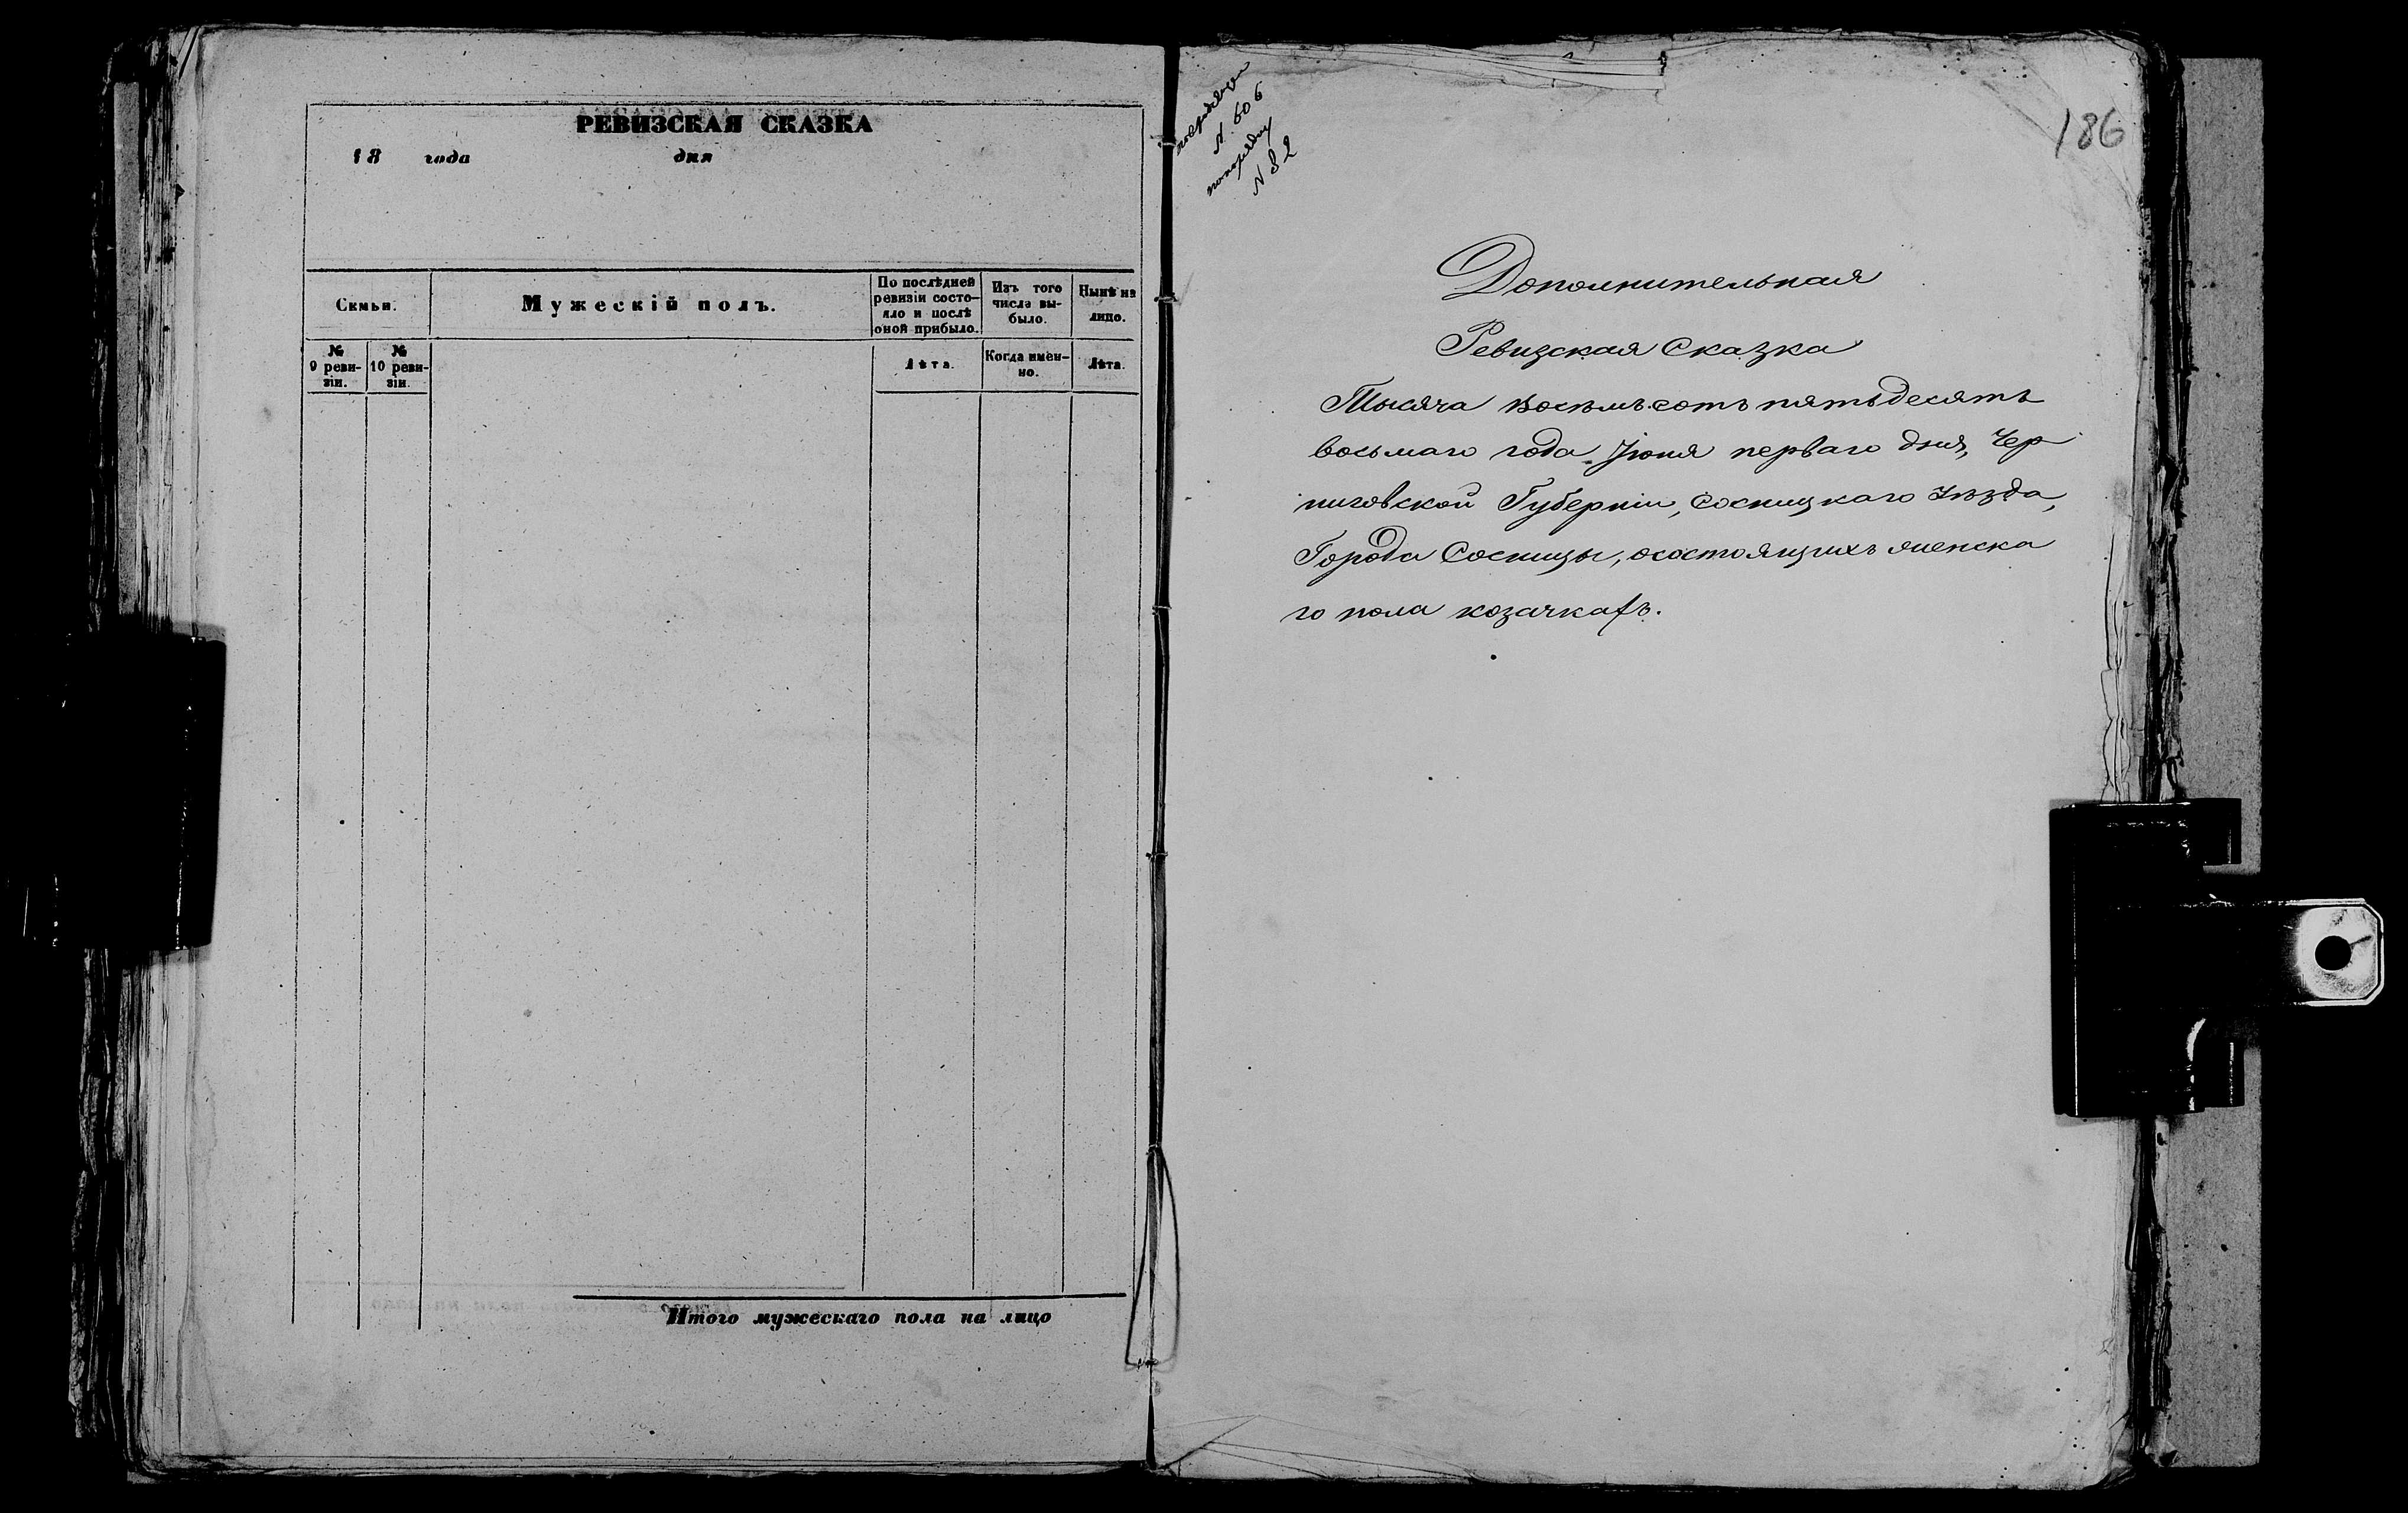 РЕВИЗСКАЯ СКАЗКА
18 года дня
Семьи.
Мужескій полъ.
По послѣдней
ревизіи состо-
яло и послѣ
оной прибыло.
Изъ того
числа вы-
было.
Нынѣ на
лицо.
№
9 реви-
зіи.
№
10 реви-
зіи.
Лѣта.
Когда имен-
но.
Лѣта.
Итого мужескаго пола на лицо
N. 606
N 82
186
Дополнительная
Ревизская Сказка
Тысяча восемь сотъ пятьдесятъ
восьмаго года Іюня перваго дня, Чер
ниговской Губерніи, Сосницкаго Уѣзда,
Города Сосницы, о состоящихъ женска
го пола козачкахъ.